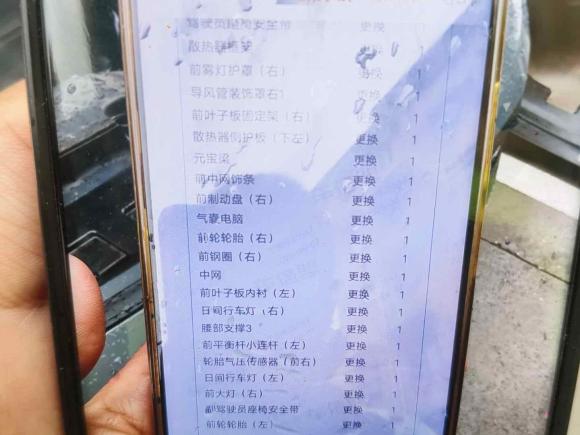 驾驶员座椅安全带 更换 1
散热器框架 更换 1
前雾灯护罩（右） 更换 1
导风管装饰罩右1 更换 1
前叶子板固定架（右） 更换 1
散热器侧护板（下左） 更换 1
元宝梁 更换 1
前中网饰条 更换 1
前制动盘（右） 更换 1
气囊电脑 更换 1
前轮轮胎（右） 更换 1
前钢圈（右） 更换 1
中网 更换 1
前叶子板内衬（左） 更换 1
日间行车灯（右） 更换 1
腰部支撑3 更换 1
前平衡杆小连杆（左） 更换 1
轮胎气压传感器（前右） 更换 1
日间行车灯（左） 更换 1
前大灯（右） 更换 1
副驾驶员座椅安全带 更换 1
前轮轮胎（左） 更换 1